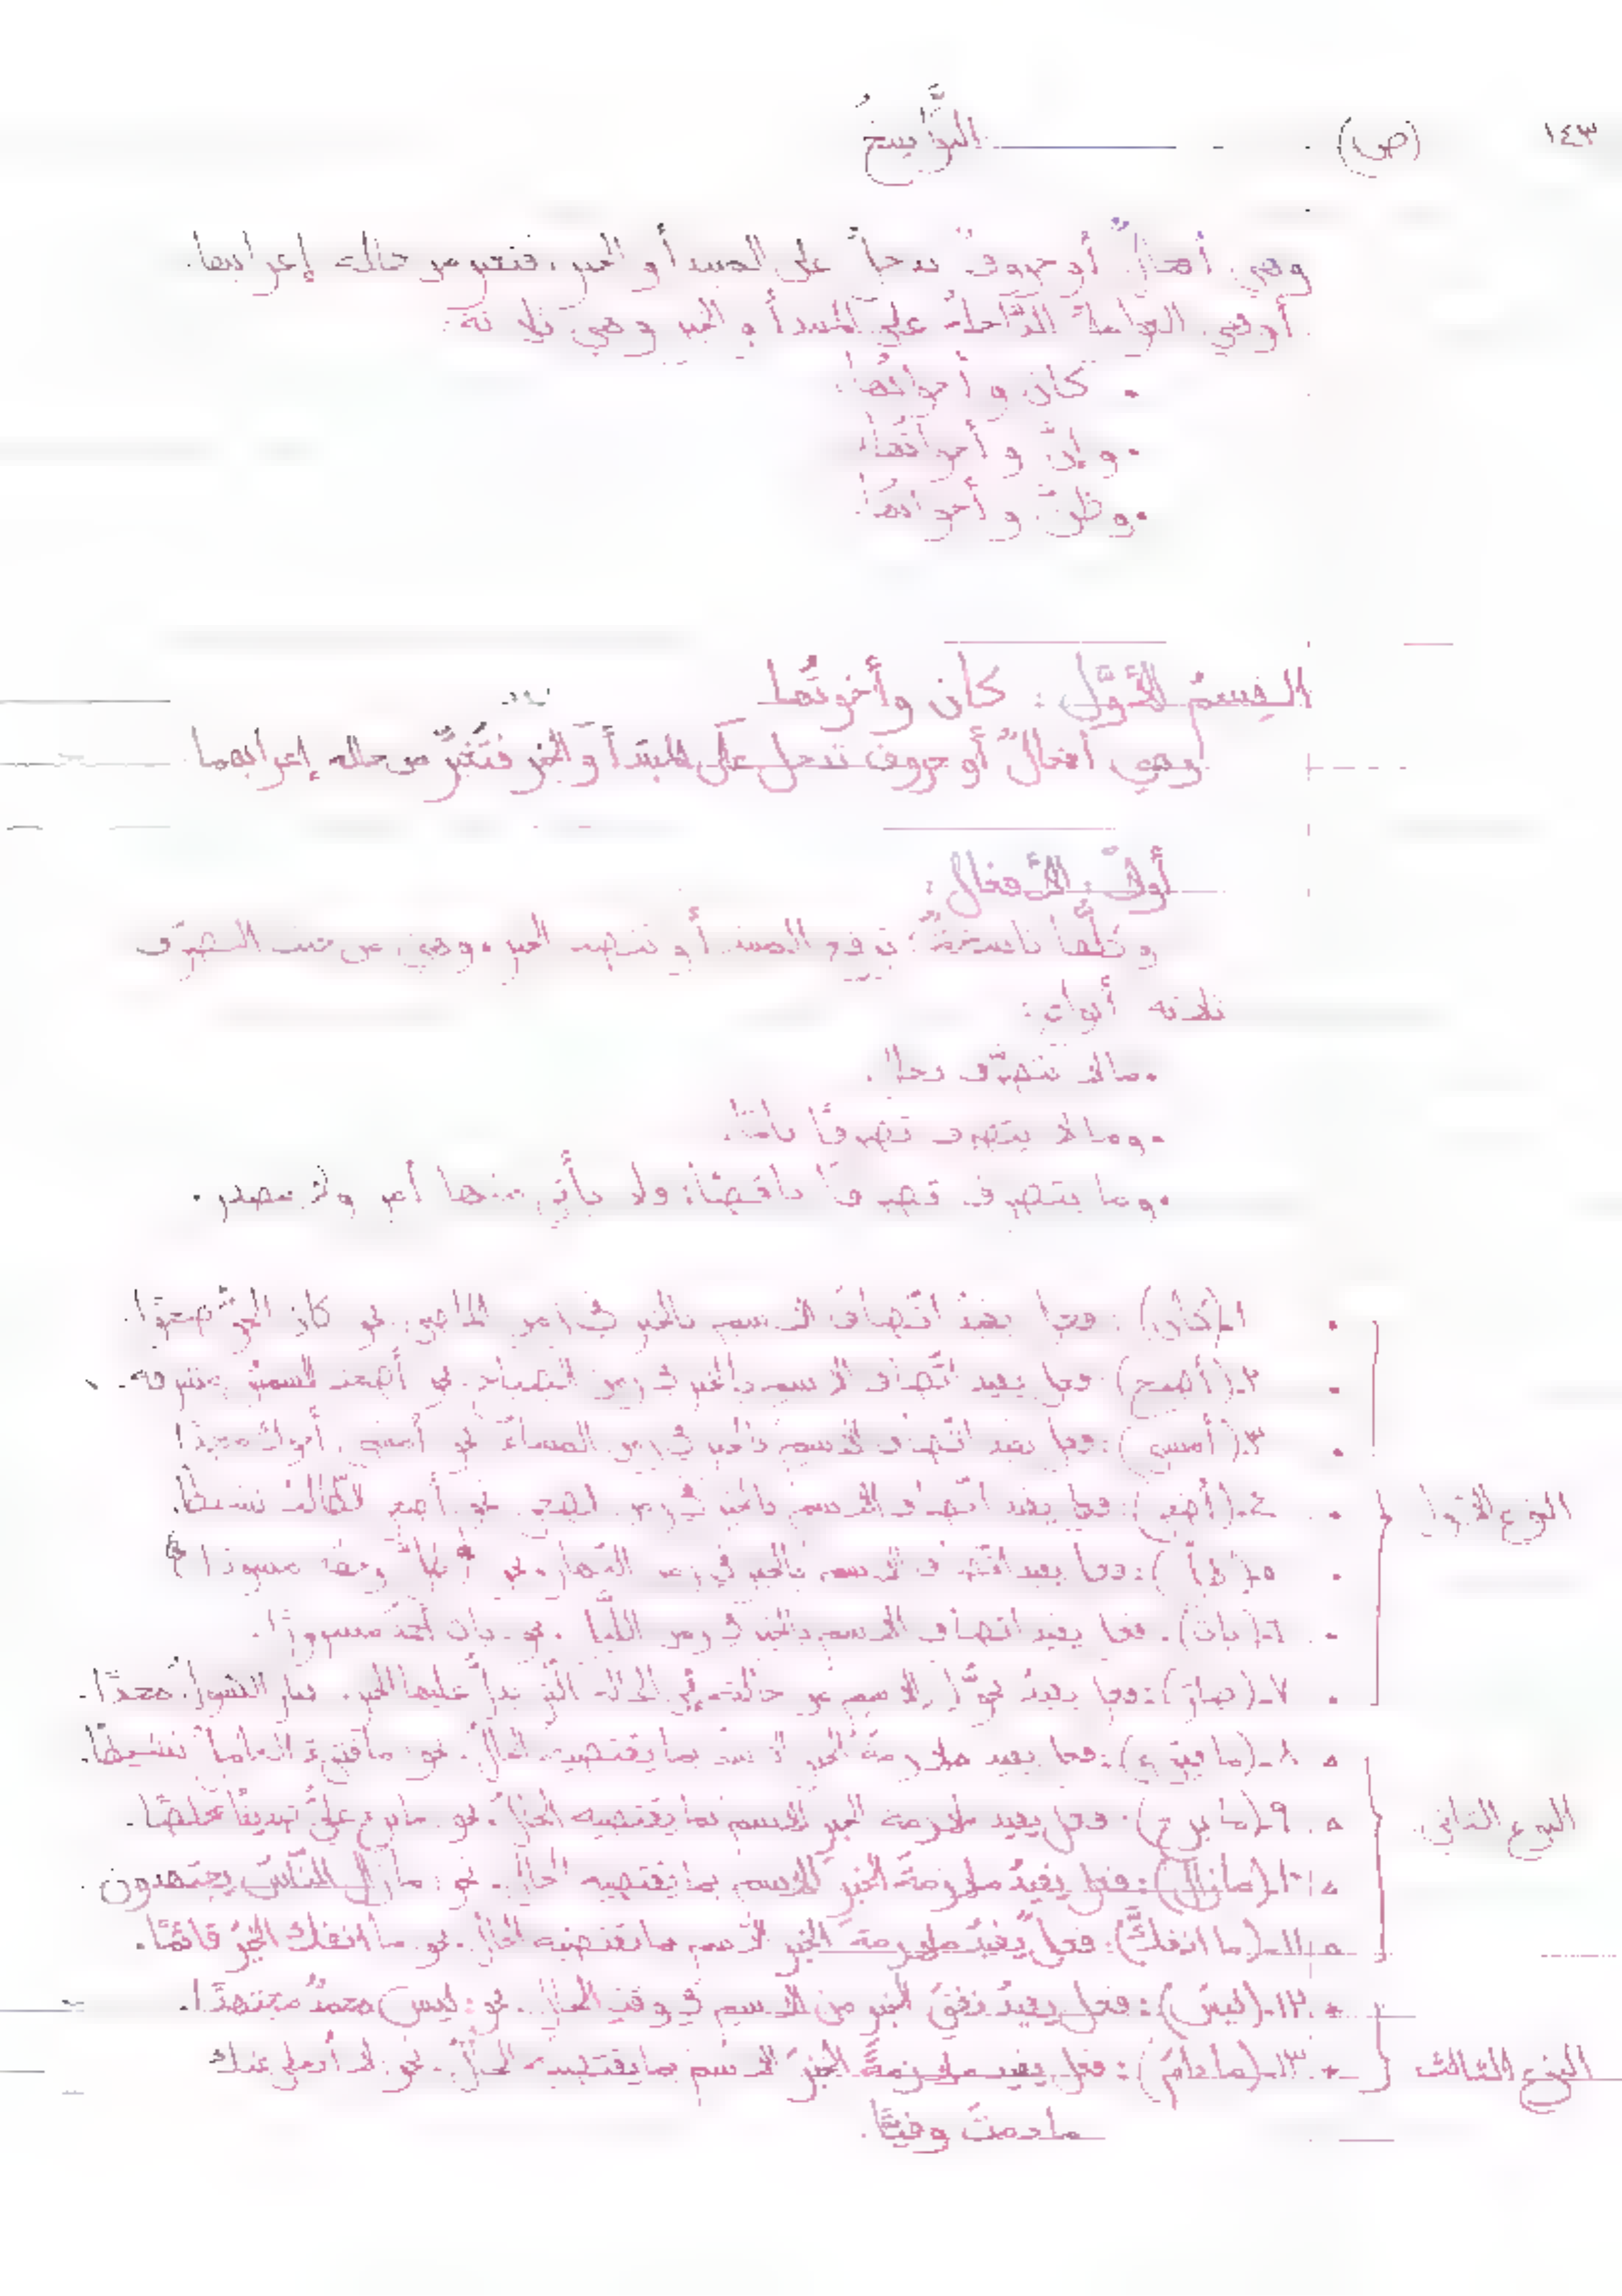 ١٤٣ (ص) النَّوَاسِخُ
وهي أفعالٌ أو حروفٌ تدخل على المبتدأ و الخبر، فتغير من حالة إعرابهما.
أو هي العوامل الدّاخلة على المبتدأ و الخبر وهي ثلاثة:
• كان و أخواتُها.
• و إنّ و أخواتُها.
• و ظنّ و أخواتُها.
القِسمُ الأوّل : كان وأخوتُها
وهي أفعالٌ أو حروف تدخل على المبتدأ و الخبر فتُغيّرُ من حالة إعرابهما
أولاً : الأفعال :
وكلّها ناسخةٌ؛ ترفع المبتدأ و تنصب الخبر، وهي من حيث التصرّف
ثلاثة أبواب :
• مالا يتصرّف بحال.
• وما يتصرف تصرفًا تامًّا.
• وما يتصرف تصرفًا ناقصًا: ولا يأتي منها أمر ولا مصدر.
• ١-(كان) : فعل يفيد اتّصاف الاسم بالخبر في زمن الماضي. نحو كان الجوّ صحوًا.
• ٢-(أصبح) : فعل يفيد اتّصاف الاسم بالخبر في زمن الصباح. نحو أصبحت الشمسُ مشرقة.
• ٣-(أمسى) : فعل يفيد اتّصاف الاسم بالخبر في زمن المساء نحو أمسى أخوك مجدًا
النوع الأول • ٤-(أضحى) : فعل يفيد اتّصاف الاسم بالخبر في زمن الضحى. نحو أضحى الطّالبُ نشيطًا.
• ٥-(ظلّ) : فعل يفيد اتّصاف الاسم بالخبر في زمن النّهار. نحو ﴿ظلّ وجهه مسودا﴾
• ٦-(بات) : فعل يفيد اتصاف الاسم بالخبر في زمن اللّيل. نحو بات أحمدُ مسرورًا.
• ٧-(صارَ) : فعل يفيدُ تحوّل الاسم من حالته إلى الحالة الّتي يدلّ عليها الخبر.
• ٨-(ما فتئ) : فعل يفيد ملازمة الخبر الاسم بما يقتضيه الحالُ. نحو: ما فتئ العاملُ نشيطًا.
النوع الثاني • ٩-(ما برح) : فعل يفيد ملازمة الخبر للاسم بما يقتضيه الحالُ. نحو: ما برح عليٌّ صديقًا مخلصًا.
• ١٠-(مازال) : فعل يفيدُ ملازمة الخبرَ للاسم بما يقتضيه الحال. نحو: مازال النّاسُ يجتهدون
• ١١-(ما انفكَّ) : فعلٌ يُفيدُ ملازمة الخبر الاسم بما يقتضيه الحال. نحو ما انفك الخيرُ قائمًا.
• ١٢-(ليسَ) : فعل يفيدُ نفيَ الخبر من الاسم في وقت الحال. نحو: ليس محمدٌ مجتهدًا.
النوع الثالث • ١٣-(مادام) : فعل يفيد ملازمةَ الخبرَ الاسم بما يقتضيه الحالُ. نحو: لا أتخلى عنك
مادمتَ وفيًّا.